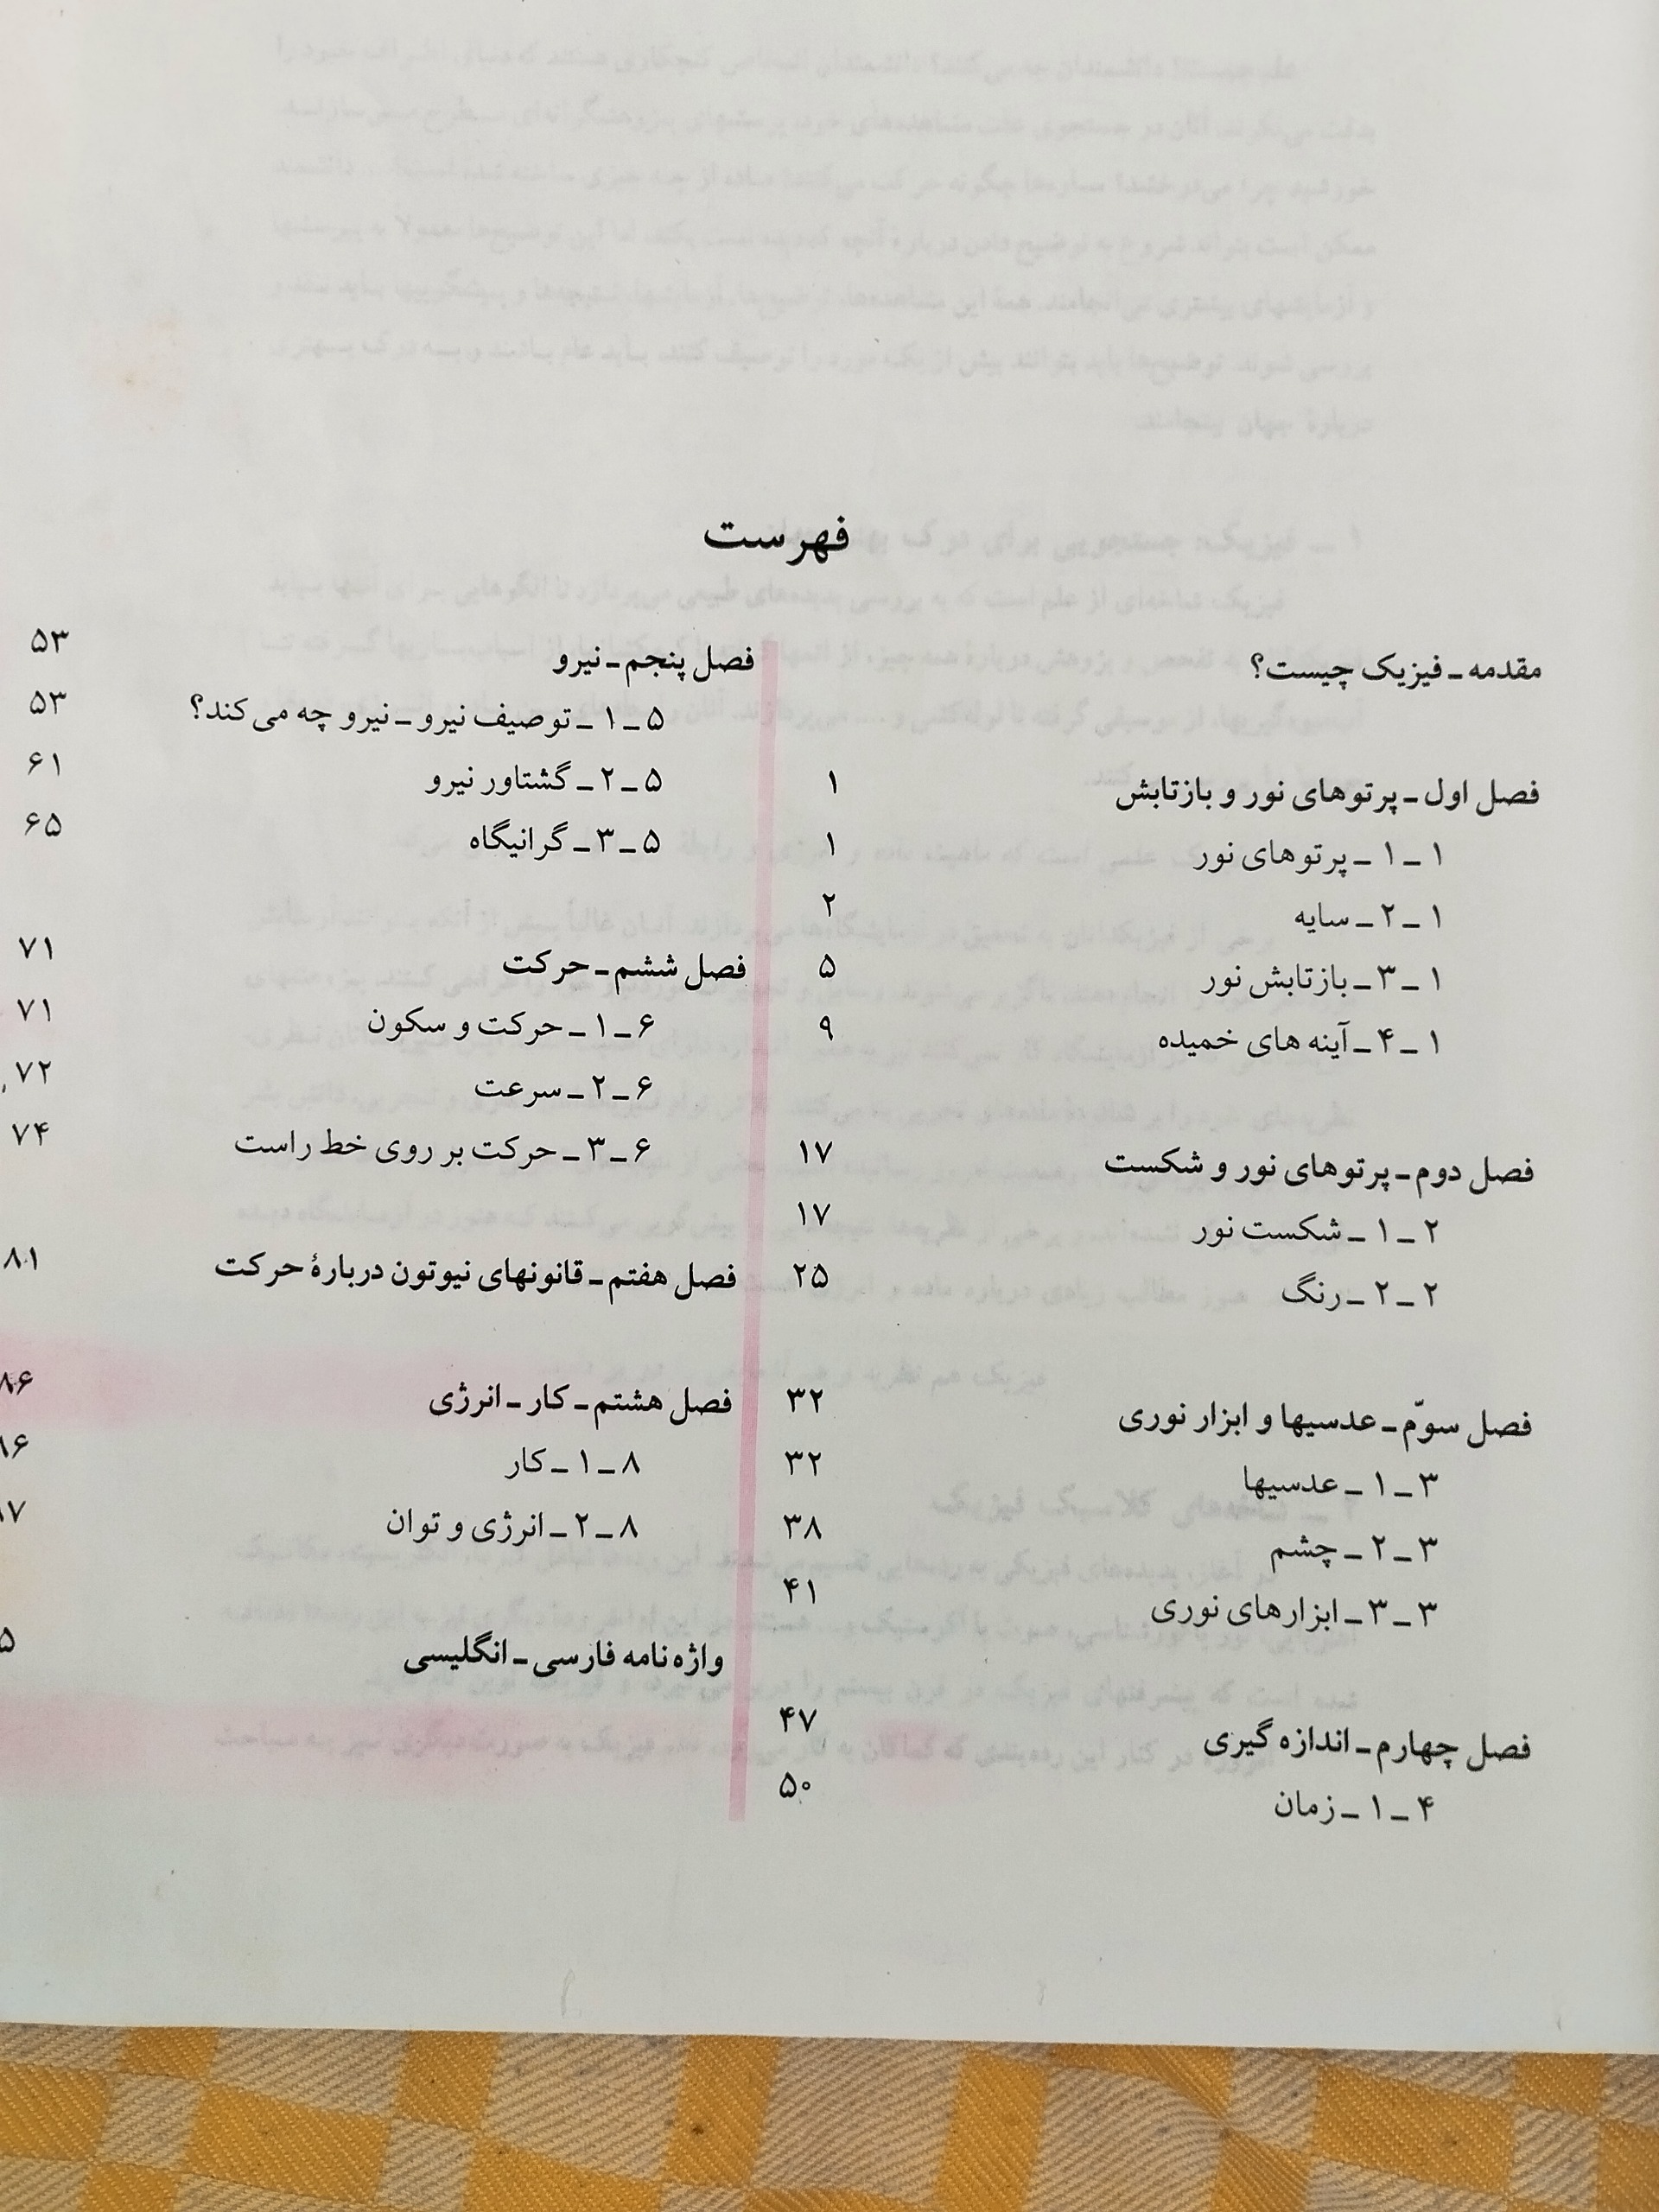 فهرست
مقدمه ـ فیزیک چیست؟
فصل اول ـ پرتوهای نور و بازتابش ۱
۱ ـ ۱ ـ پرتوهای نور ۱
۱ ـ ۲ ـ سایه ۲
۱ ـ ۳ ـ بازتابش نور ۵
۱ ـ ۴ ـ آینه های خمیده ۹
فصل دوم ـ پرتوهای نور و شکست ۱۷
۲ ـ ۱ ـ شکست نور ۱۷
۲ ـ ۲ ـ رنگ ۲۵
فصل سوّم ـ عدسیها و ابزار نوری ۳۲
۳ ـ ۱ ـ عدسیها ۳۲
۳ ـ ۲ ـ چشم ۳۸
۳ ـ ۳ ـ ابزارهای نوری ۴۱
فصل چهارم ـ اندازه گیری ۴۷
۴ ـ ۱ ـ زمان ۵۰
فصل پنجم ـ نیرو ۵۳
۵ ـ ۱ ـ توصیف نیرو ـ نیرو چه می کند؟ ۵۳
۵ ـ ۲ ـ گشتاور نیرو ۶۱
۵ ـ ۳ ـ گرانیگاه ۶۵
فصل ششم ـ حرکت ۷۱
۶ ـ ۱ ـ حرکت و سکون ۷۱
۶ ـ ۲ ـ سرعت ۷۲
۶ ـ ۳ ـ حرکت بر روی خط راست ۷۴
فصل هفتم ـ قانونهای نیوتون دربارهٔ حرکت ۸۱
فصل هشتم ـ کار ـ انرژی ۸۶
۸ ـ ۱ ـ کار ۸۶
۸ ـ ۲ ـ انرژی و توان
واژه نامه فارسی ـ انگلیسی